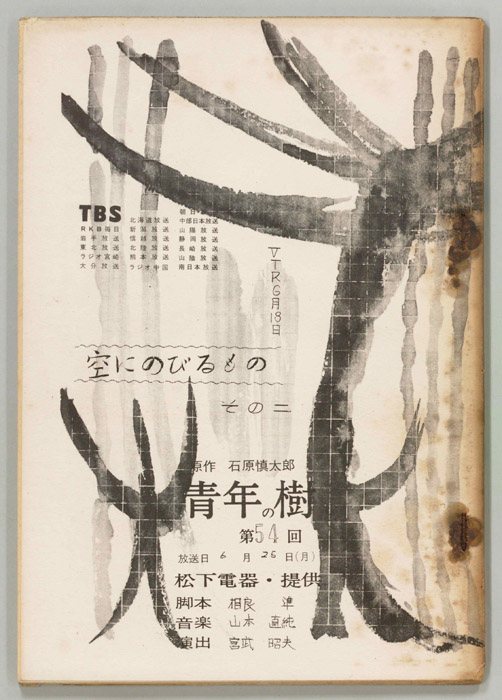 TBS
RKB毎日 北海道放送 朝日放送
岩手放送 新潟放送 中部日本放送
東北放送 信越放送 山陽放送
ラジオ宮崎 北陸放送 静岡放送
大分放送 熊本放送 長崎放送
ラジオ中国 山陰放送
南日本放送
VTR6月18日
空にのびるもの
その二
原作 石原慎太郎
青年の樹
第54回
放送日 6月25日(月)
松下電器・提供
脚本 相良 準
音楽 山本 直純
演出 宮武 昭夫